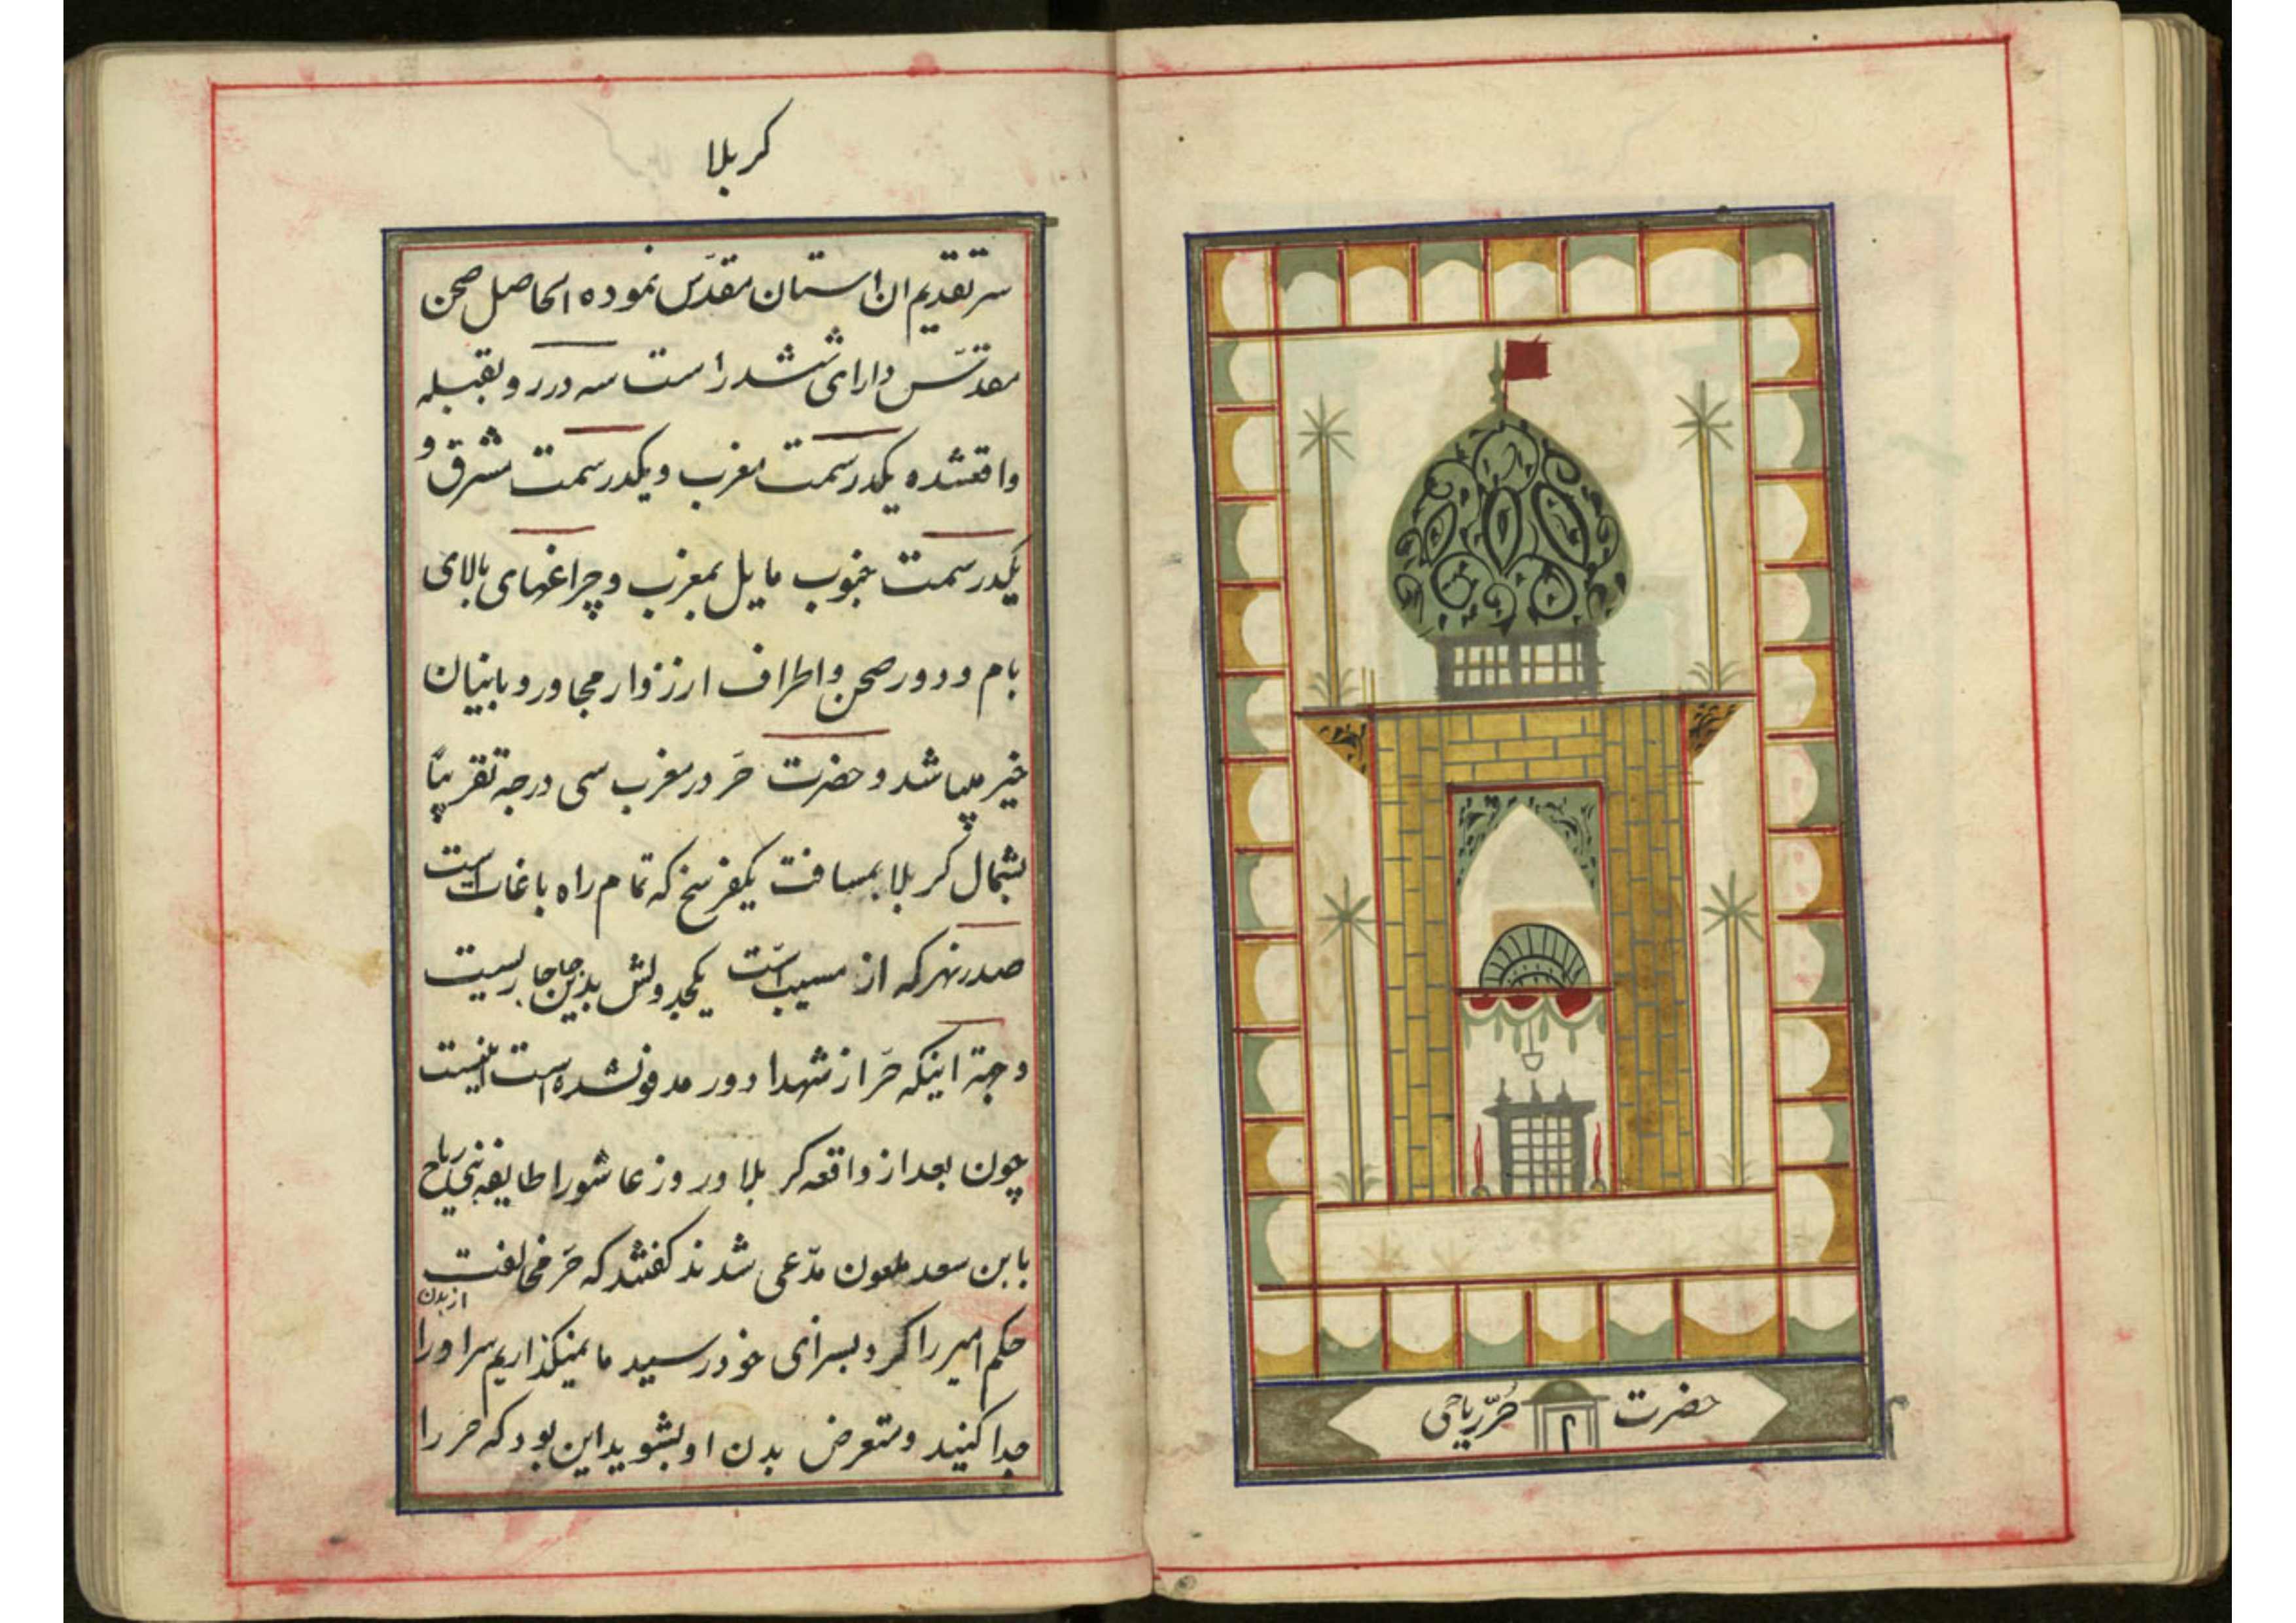 حضرت حُرّ ریاحی
۲
کربلا
سر تقدیم ان استان مقدّس نموده الحاصل صحن
مقدّس دارای ششدر است سه در رو بقبله
واقعشده یکدر سمت مغرب و یکدر سمت مشرق و
یکدر سمت جنوب مایل بمغرب و چراغهای بالای
بام و دور صحن و اطراف از زوار مجاور و بانیان
خیر میباشد و حضرت حَر در مغرب سی درجه تقریباً
بشمال کربلا بمسافت یکفرسخ که تمام راه باغات است
صدر نهر که از مسیب است یکجدولش بدین جا جاریست
و جهة اینکه حَر از شهدا دور مدفونشده است اینست
چون بعد از واقعه کربلا و روز عاشورا طایفه بنی ریاح
با بن سعد ملعون مدّعی شدند گفتند که حَر مخالفت
حکم امیر را کرد بسزای خود رسید ما نمیگذاریم سر او را از بدن
جدا کنید و متعرض بدن او بشوید این بود که حر را